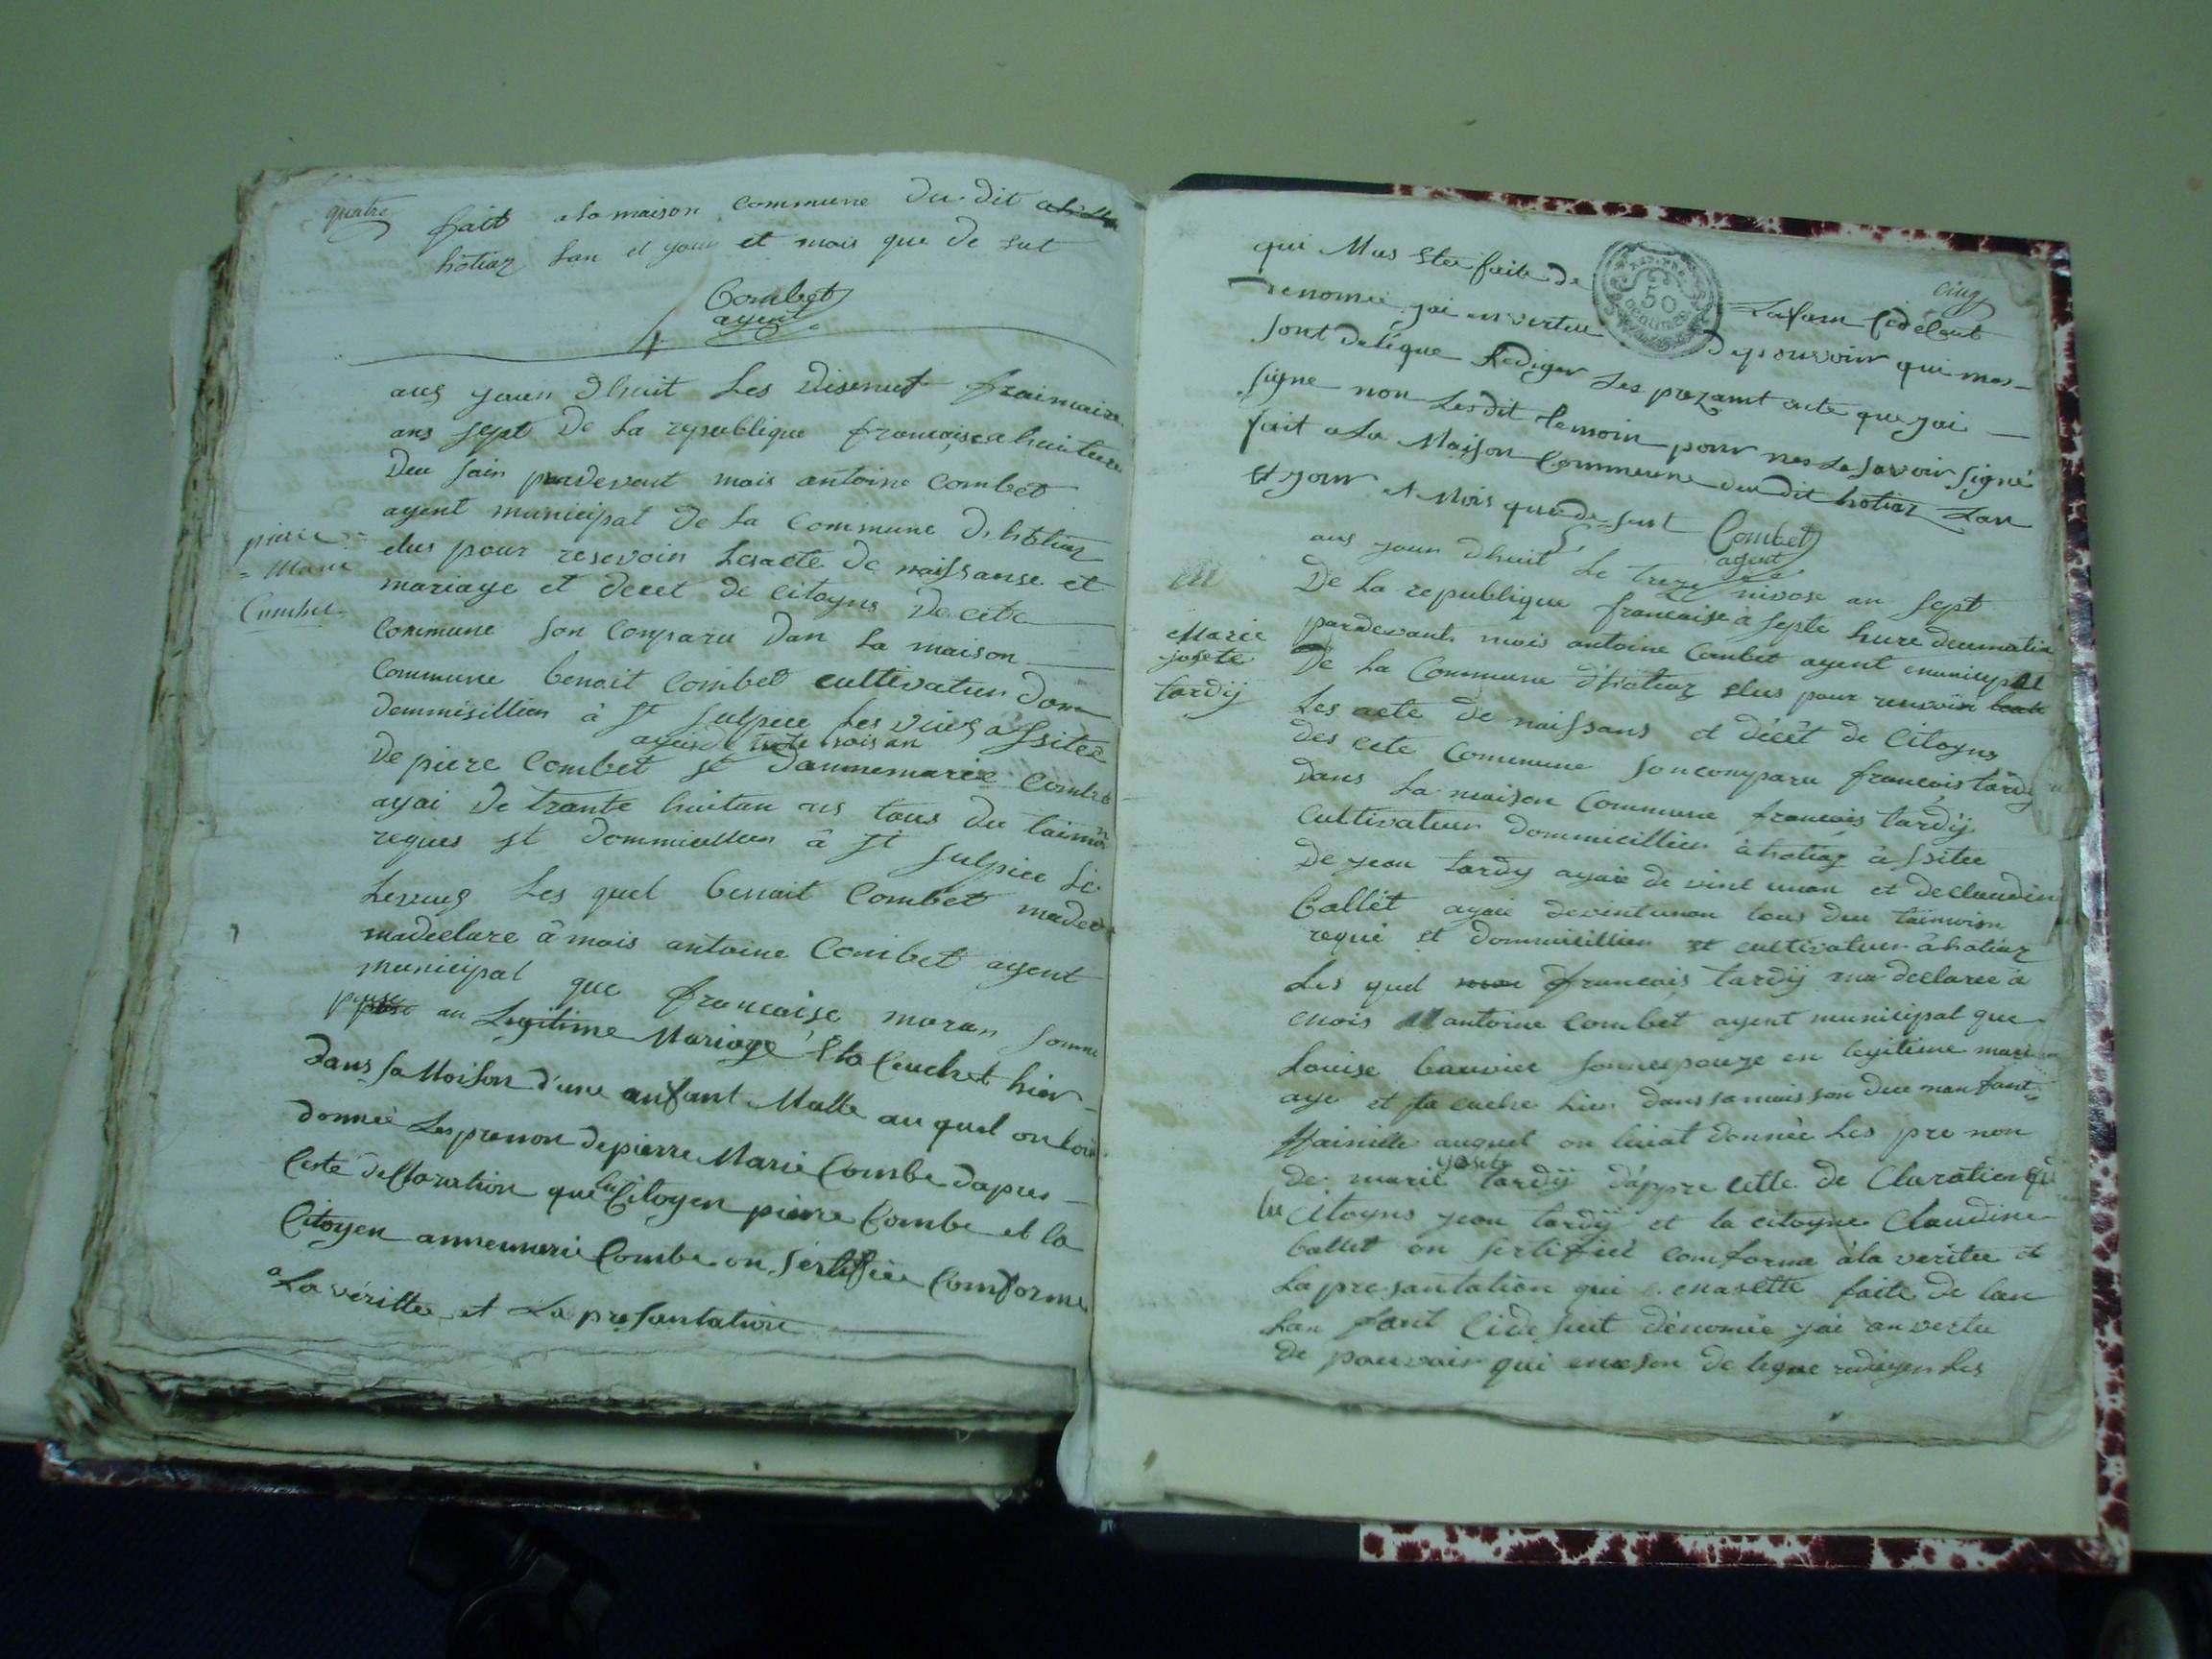 quatre
fait a la maison commune du dit
hotiaz lan et jour et mois que de sut
Combet
agent
4
auj jours dhuit les disenut fraimaire
ans sept de la republique francaise a huit
du soin pardevant mois antoine combet
agent municipal de la commune dhotiaz
elus pour resevoir lesacte de naissanse et
mariage et decet de citoyns de cete
pierre
Marie
Combet
commune son conparu dan la maison
commune benoit combet cultivateur dom
demmisillien à st sulpice les vieus assitee
agai de trente trois an
de piere combet et dannemarie combet
agai de trante huitan ans tous du taimoi
reques et dommicillien â st sulpice le
levieus les quel benoit combet
madeclare â mois antoine combet agent
municipal que francoise moran sonne
pouse au Legitime Mariage Sta Couchet hier
dans sa Moison d'une anfant Malle au quel on
donnée Les prenon depierre Marie Combe dapres
Ceste declaration que le Citoyen pierre Combe et la
Citoyen annemerie Combe on Sertifiee Comforme
a La véritte et La presantation
cinq
qui Mas Etee faite de Lafam Cidesut
denomée jai en vertue des pouvoir qui mes
sont deleque Rediger Les prezamt acte que jai
signe non Lesdit temoin pour nes Le savoir Signé
fait a La Maison Commeune deu dit hotiaz Lan
Et jour et Mois que de sut
Combet
agent
5
auj jour dhuit le treze nivose an sept
De la republique francaise à septe hure deumatin
pardevant mois antoine combet agent municipal
De la commune dhotiaz elus pour resevoir
Marie
josete
tardij
Les acte de naissans et décêt de citoyns
des cete commune son conparu francois tardij
dans la maison commune francois tardij
cultivateur dommicillien à hotiaz assitee
de jean tardy agaie de vint unan et declaudine
ballet agaie devintunan tous deu taimoin
requi et dommicillien et cultivateur àhotiaz
Les quel francois tardij ma declaree a
mois antoine combet agent municipal que
Louise bauvier sonne pouze en legitime mari
age et sta cuche hier dans sa maisson due nanfant
auquel on luiat donnée les pre non
josete
de marie tardij dáppre cette de claration
les citoyns jean tardij et la citoyne claudine
ballet on sertifiée comforme àla veritee et
la presantation qui masette faite de lan
Lan fant cide suit dénomée jai anvertu
de pouvoir qui meson de legue redigerles